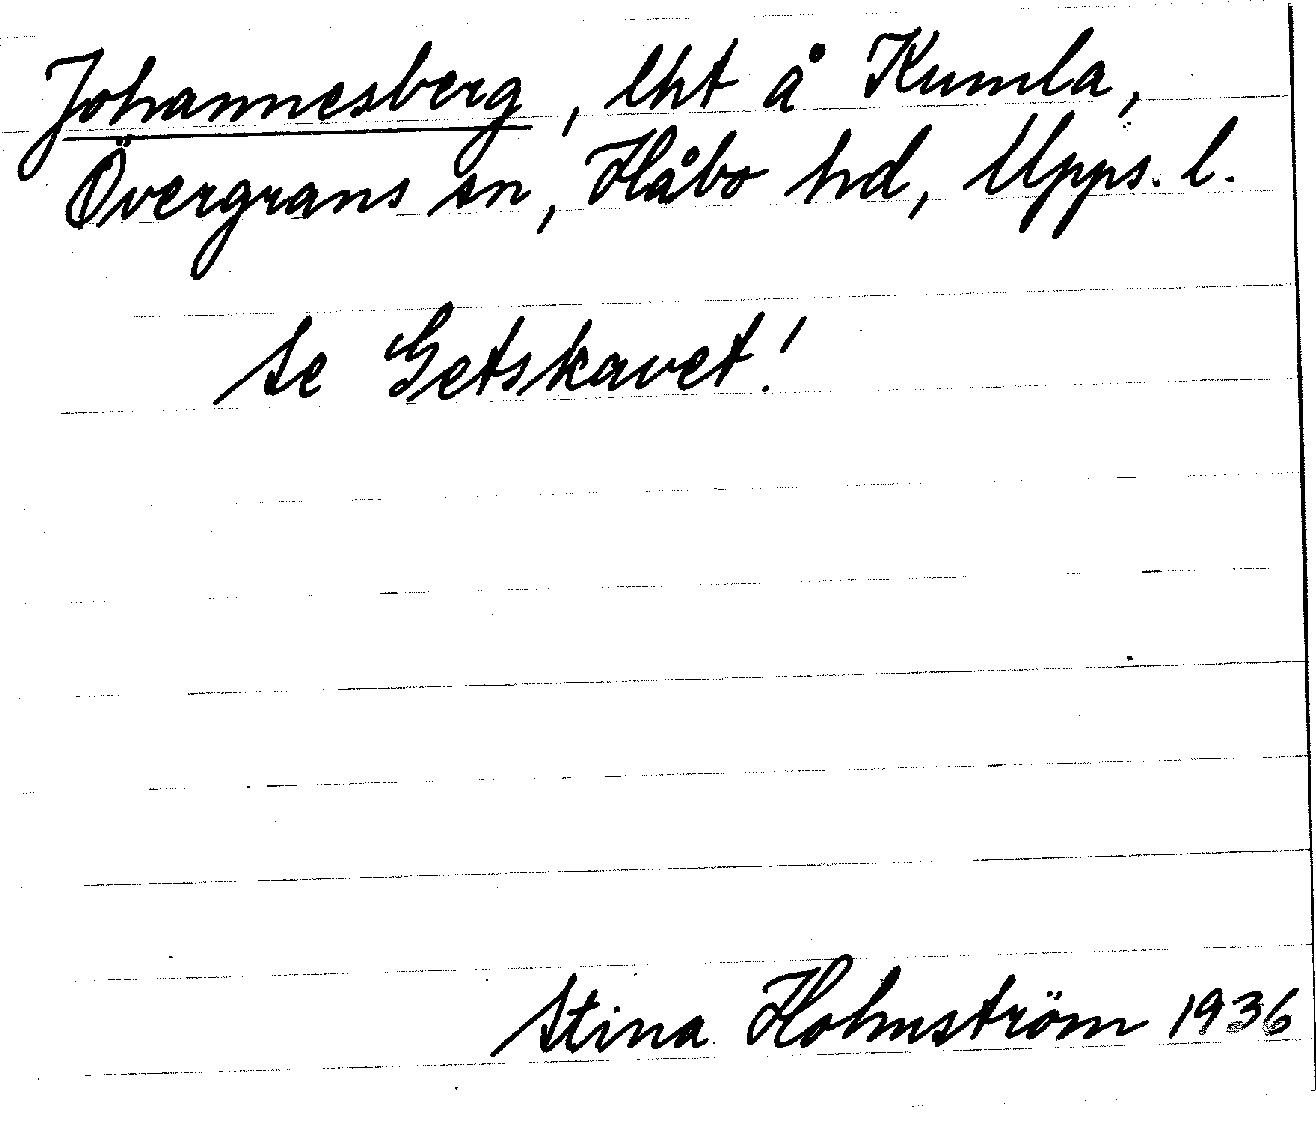 Johannesberg, lht å Kumla,
Övergrans sn, Håbo hd, Upps. l.
Se Getskavet!
Stina Holmström 1936